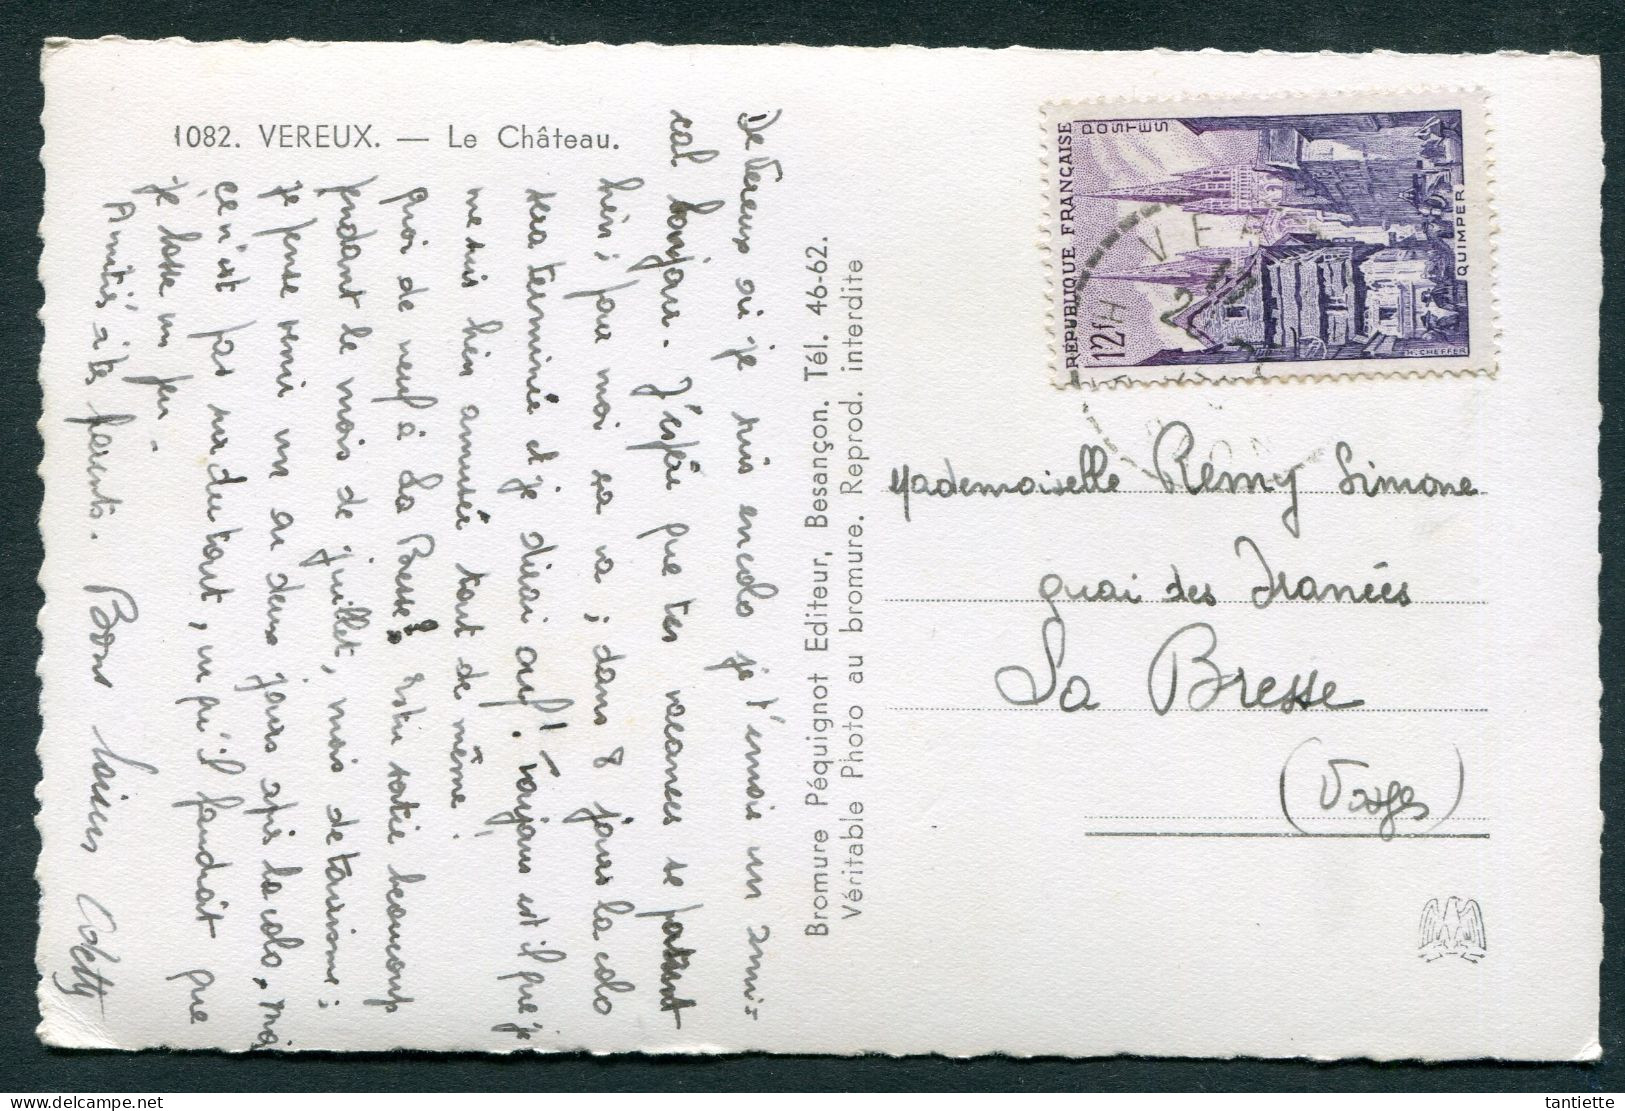 1082. VEREUX. — Le Château.
De Vereux où je suis en colo je t'envois un ami-
cal bonjour. J'espère que tes vacances se passent
bien ; pour moi ça va ; dans 8 jours la colo
sera terminée et je dirai ouf ! Toujours est il que je
me suis bien amusée tout de même
quoi de neuf à La Bresse ? Estu sortie beaucoup
pendant le mois de juillet, mois de tourisme ;
je pense venir un ou deux jours après la colo, moi
ce n'est pas sur du tout, un qu'il faudrait que
je bosse un peu -
Amitiés à tes parents. Bons baisers Coletty
Bromure Péquignot Editeur, Besançon. Tél. 46-62.
Véritable Photo au bromure. Reprod. interdite
REPUBLIQUE FRANÇAISE
POSTES
12f
QUIMPER
H. CHEFFER
Mademoiselle Remy Simone
quai des Iranées
La Bresse
(Vosges)
tantiette